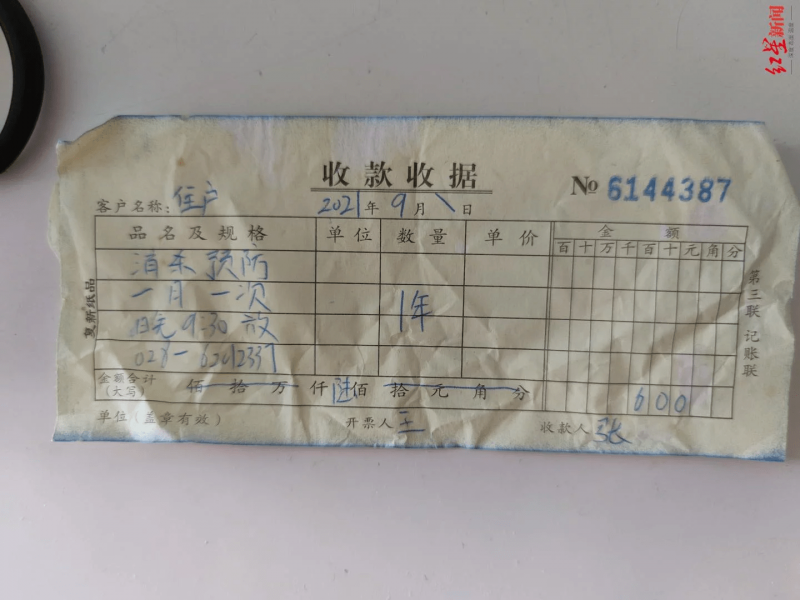 红星新闻
收款收据
№ 6144387
客户名称：住户 2021年9月\日
品名及规格 单位 数量 单价 金额
百十万千百十元角分
消杀预防
一月一次 1年
9:30
028-62412337
金额合计（大写） 佰拾万仟陆佰拾元角分 600
单位（盖章有效） 开票人 王 收款人 张
复新纸品
第三联 记账联